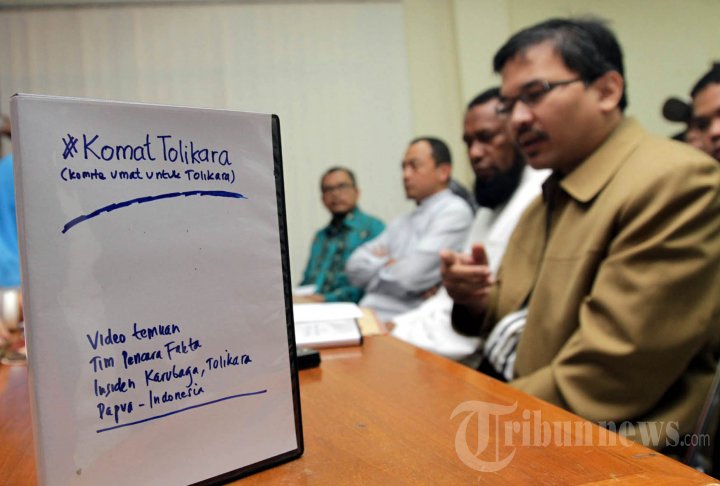 #Komat Tolikara
(komite umat untuk Tolikara)
Video temuan
Tim Pencara Fakta
Insiden Karubaga, Tolikara
Papua - Indonesia
Tribunnews.com